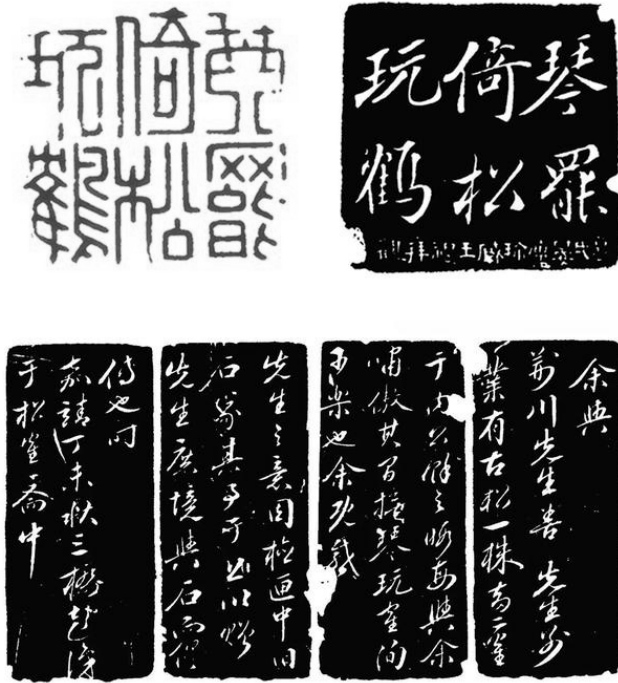 琴罷
倚松
玩鶴
琴罷
倚松
玩鶴
余與
荊川先生善 先生別
業有古松一株畜二隺
于内公餘之暇每與余
嘯傲其間撫琴玩隺洵
可樂也余既感
先生之意因檢匣中旧
石篆其事于上以贈
先生庶境與石而俱
傳也时
嘉靖丁未秋三橋彭識
于松隺齋中